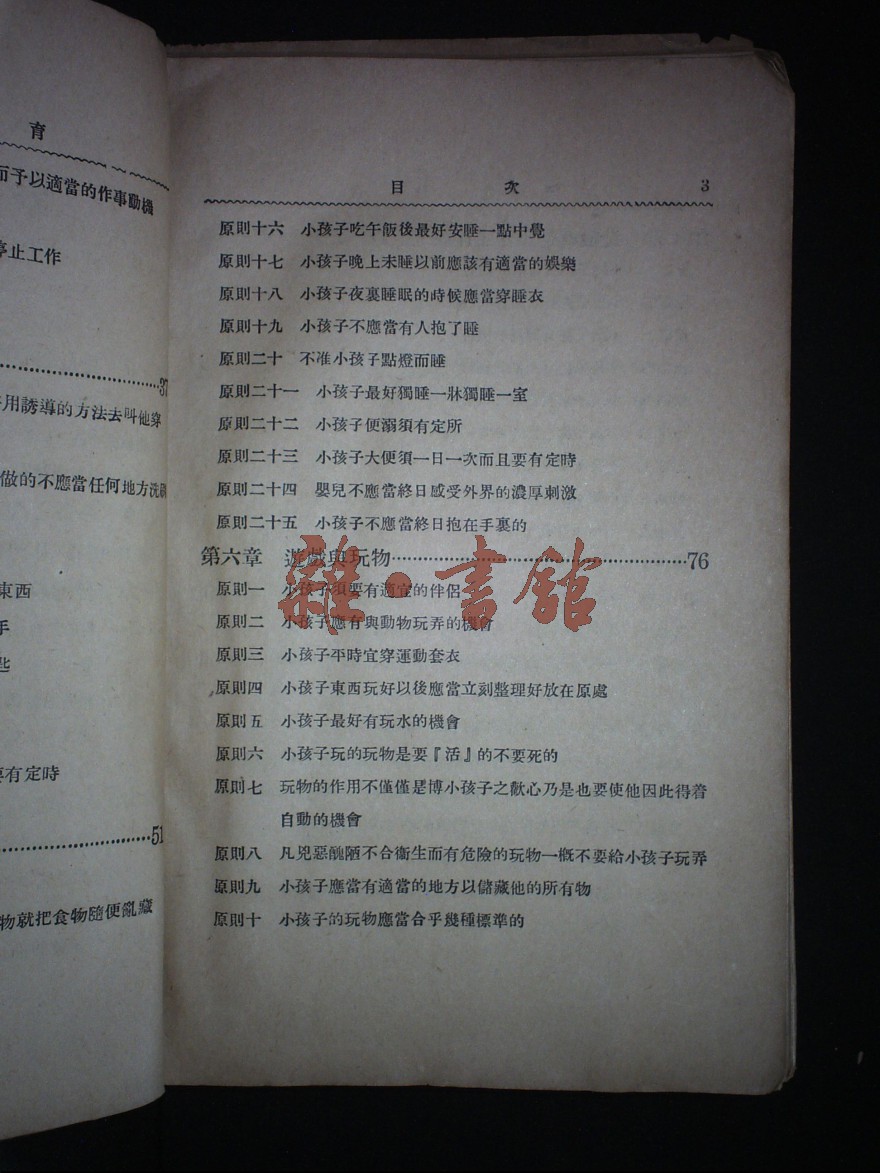 育
而予以適當的作事動機
停止工作
37
用誘導的方法去叫他穿
做的不應當任何地方洗刷
東西
手
匙
要有定時
51
物就把食物隨便亂藏
目 次 3
原則十六 小孩子吃午飯後最好安睡一點中覺
原則十七 小孩子晚上未睡以前應該有適當的娛樂
原則十八 小孩子夜裏睡眠的時候應當穿睡衣
原則十九 小孩子不應當有人抱了睡
原則二十 不准小孩子點燈而睡
原則二十一 小孩子最好獨睡一牀獨睡一室
原則二十二 小孩子便溺須有定所
原則二十三 小孩子大便須一日一次而且要有定時
原則二十四 嬰兒不應當終日感受外界的濃厚刺激
原則二十五 小孩子不應當終日抱在手裏的
第六章 遊戲與玩物……76
原則一 小孩子須要有適宜的伴侶
原則二 小孩子應有與動物玩弄的機會
原則三 小孩子平時宜穿運動套衣
原則四 小孩子東西玩好以後應當立刻整理好放在原處
原則五 小孩子最好有玩水的機會
原則六 小孩子玩的玩物是要『活』的不要死的
原則七 玩物的作用不僅僅是博小孩子之歡心乃是也要使他因此得着
自動的機會
原則八 凡兇惡醜陋不合衞生而有危險的玩物一概不要給小孩子玩弄
原則九 小孩子應當有適當的地方以儲藏他的所有物
原則十 小孩子的玩物應當合乎幾種標準的
雜·書館